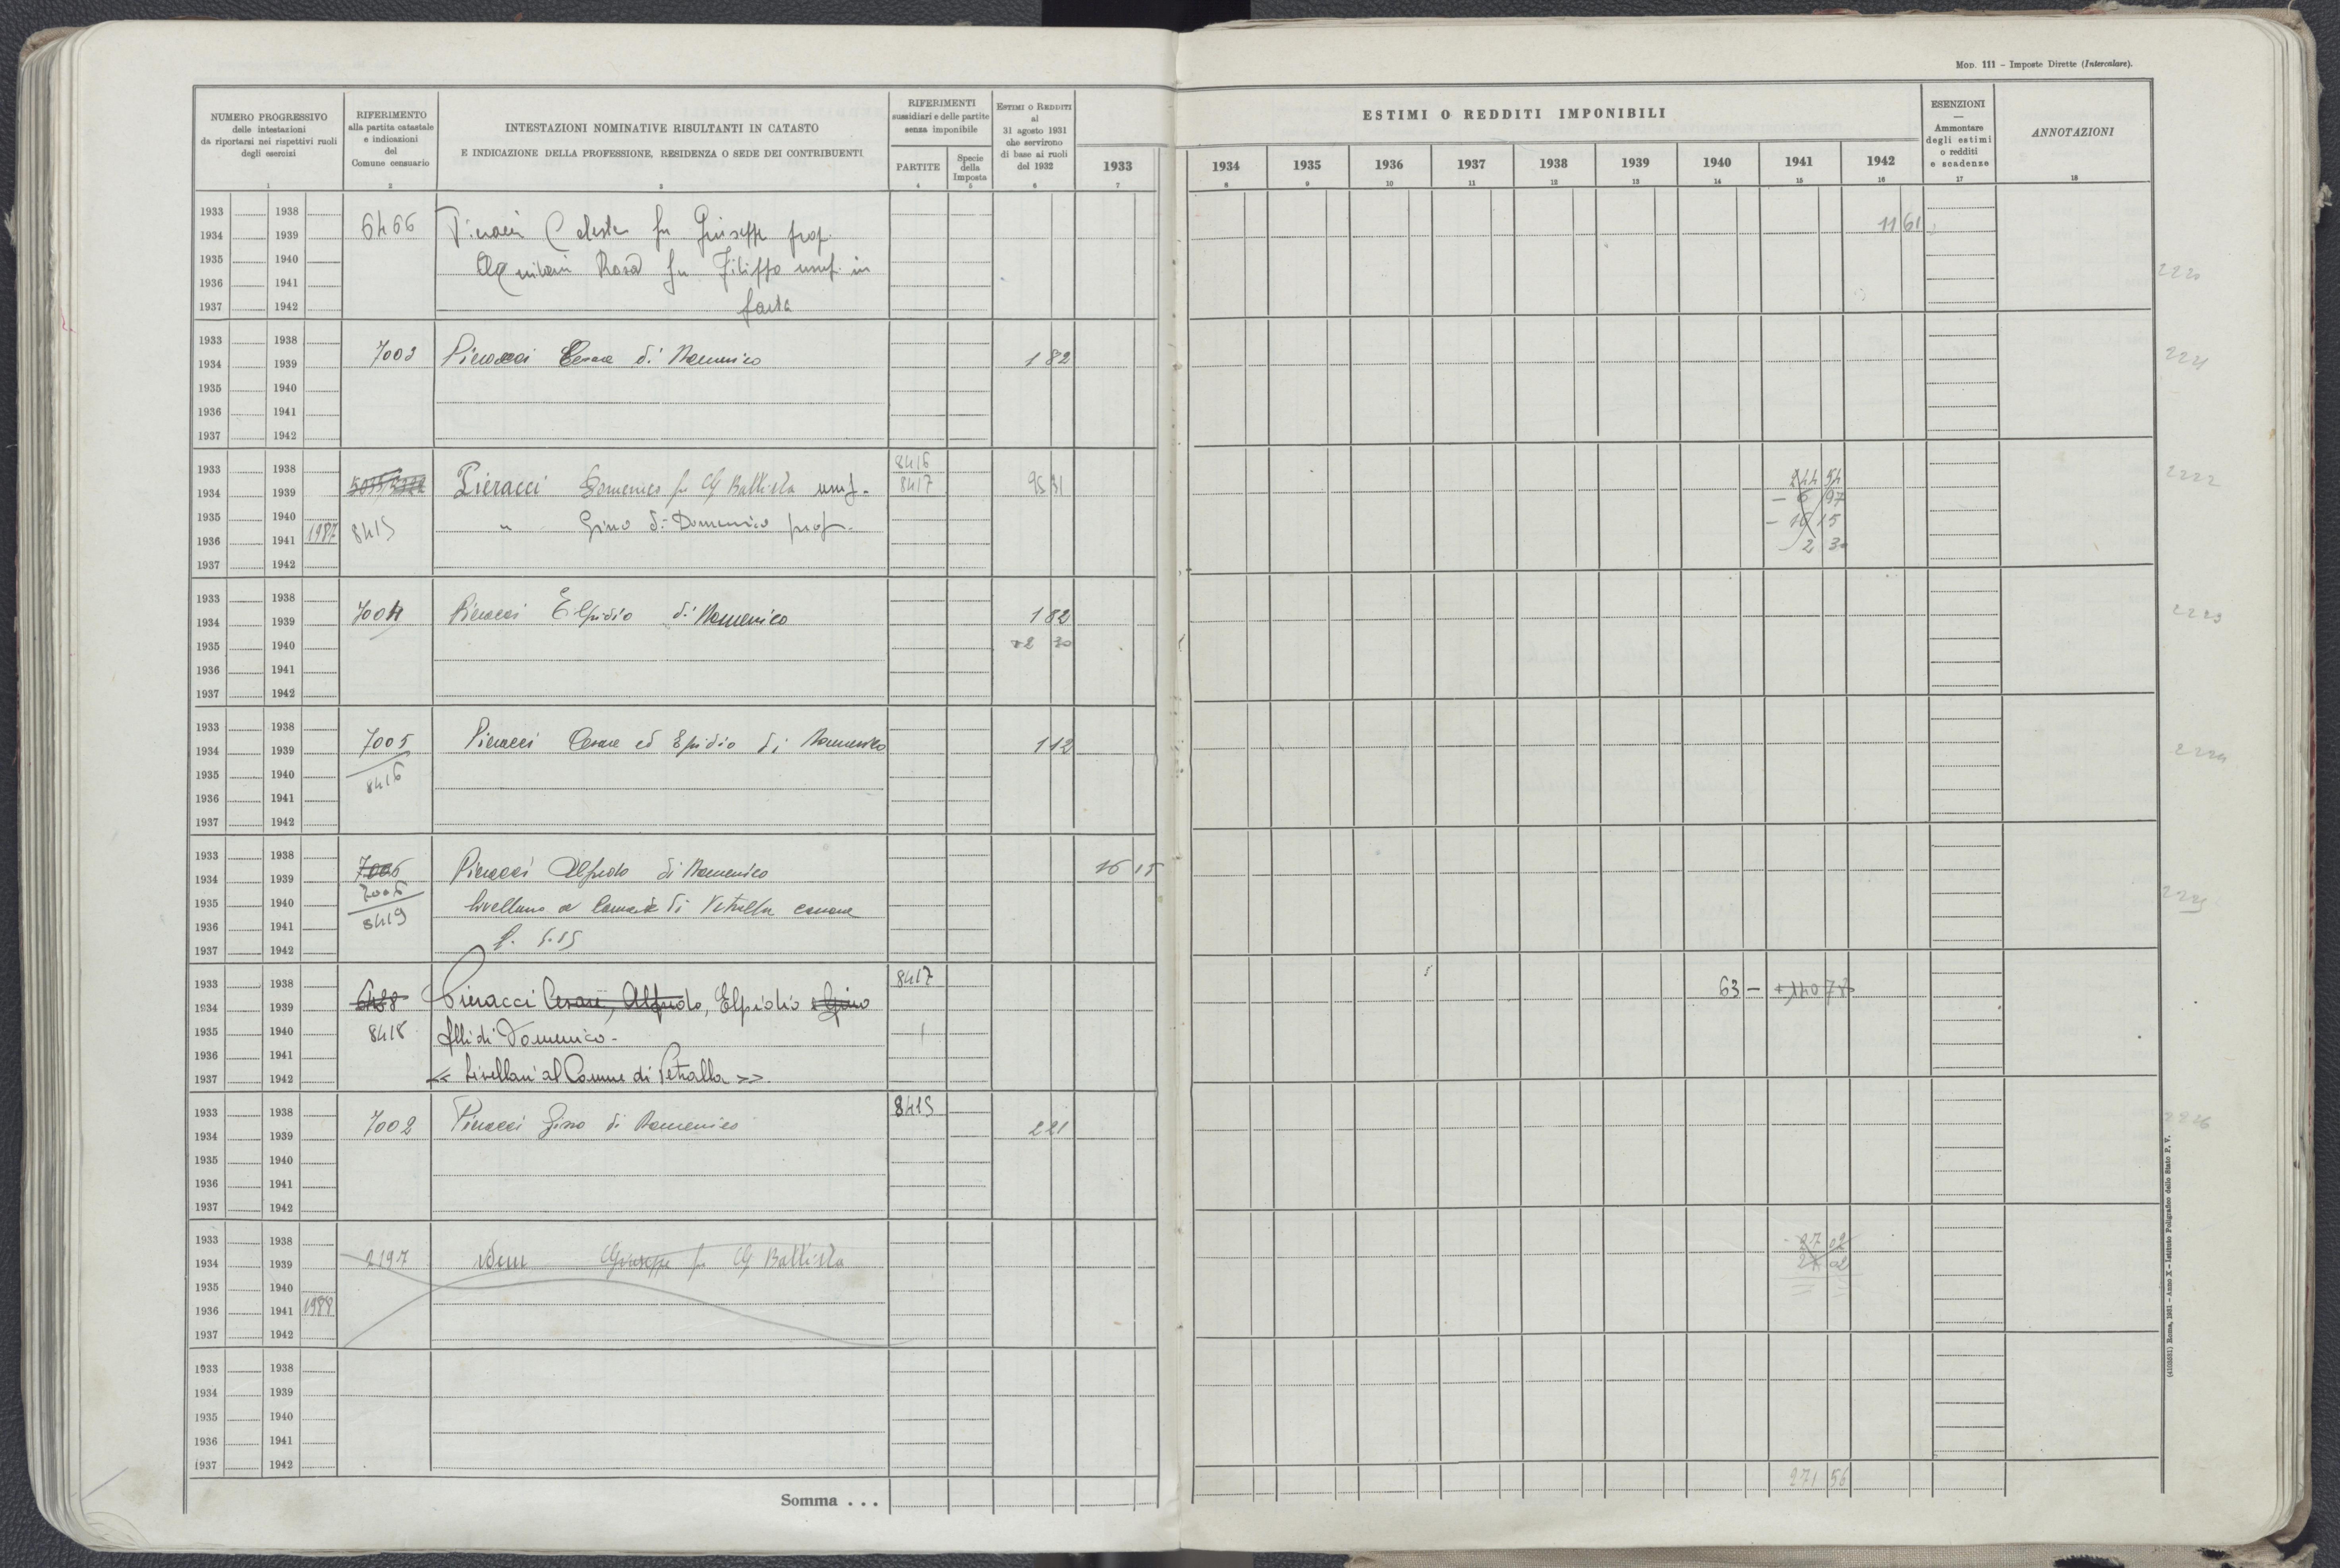 Mod. 111 – Imposte Dirette (Intercalare).
NUMERO PROGRESSIVO
delle intestazioni
da riportarsi nei rispettivi ruoli
degli esercizi
1
RIFERIMENTO
alla partita catastale
e indicazioni
del
Comune censuario
2
INTESTAZIONI NOMINATIVE RISULTANTI IN CATASTO
E INDICAZIONE DELLA PROFESSIONE, RESIDENZA O SEDE DEI CONTRIBUENTI
3
RIFERIMENTI
sussidiari e delle partite
senza imponibile
PARTITE
4
Specie
della
Imposta
5
Estimi o Redditi
al
31 agosto 1931
che servirono
di base ai ruoli
del 1932
6
1933
7
ESTIMI O REDDITI IMPONIBILI
1934 1935 1936 1937 1938 1939 1940 1941 1942
8 9 10 11 12 13 14 15 16
ESENZIONI
—
Ammontare
degli estimi
o redditi
e scadenze
17
ANNOTAZIONI
18
1933 1938
1934 1939 6466 Pieracci Celeste fu Giuseppe prop. 11 61
1935 1940 Aquilani Rosa fu Filippo usuf. in 2220
1936 1941
1937 1942 parte
1933 1938
1934 1939 7003 Pieracci Cesare di Domenico 1 82 2221
1935 1940
1936 1941
1937 1942
1933 1938 8416
1934 1939 Pieracci Domenico fu G Battista usuf. 8417 95 31 244 94 2222
– 6 97
1935 1940 " Gino di Domenico prop. – 16 15
1936 1941 1987 8415 2 30
1937 1942
1933 1938
1934 1939 7004 Pieracci Elpidio di Domenico 1 82 2223
1935 1940 +2 30
1936 1941
1937 1942
1933 1938
1934 1939 7005 Pieracci Cesare ed Elpidio di Domenico 1 12 2224
1935 1940 8416
1936 1941
1937 1942
1933 1938 7006
1934 1939 7006 Pieracci Alfredo di Domenico 16 15
1935 1940 livellario a Comune di Vetralla canone 2225
1936 1941 8419
1937 1942 £. 5.15
1933 1938 8417
1934 1939 Pieracci Cesare, Alfredo, Elpidio e Gino 63 – +140 78
1935 1940 8418 flli di Domenico -
1936 1941
1937 1942 « Livellari al Comune di Vetralla ».
1933 1938 8415
1934 1939 7002 Pieracci Gino di Domenico 2 21 2226
1935 1940
1936 1941
1937 1942
1933 1938 27 02
1934 1939 2197 Idem Giuseppe fu G Battista 27 02
1935 1940
1936 1941 1988
1937 1942
1933 1938
1934 1939
1935 1940
1936 1941
1937 1942
271 56
Somma . . .
(4103681) Roma, 1931 - Anno X - Istituto Poligrafico dello Stato P. V.